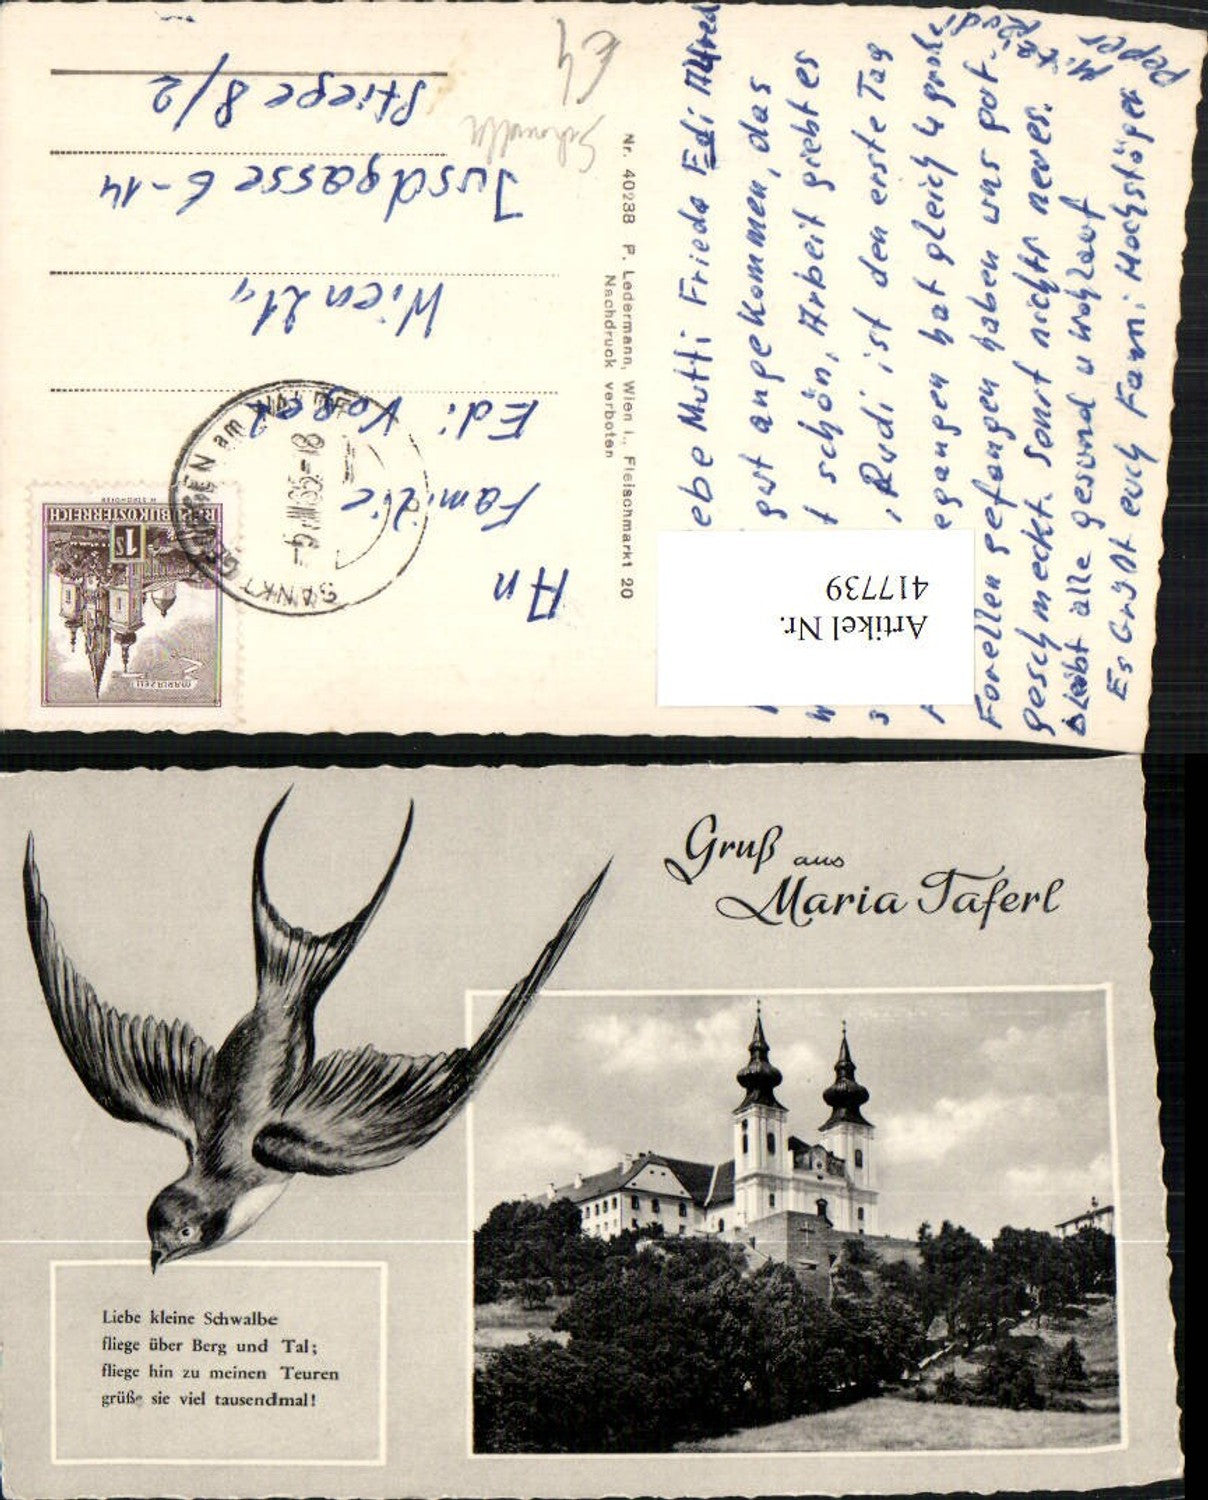 Stiege 8/2
6-14
Wien 21
Edi
Familie
An
Nr. 40238 P. Ledermann, Wien I., Fleischmarkt 20
Nachdruck verboten
REPUBLIK ÖSTERREICH
1S
MARIAZELL
SANKT GEORGEN am WALDE
ebe Mutti Frieda Edi Alfred
gut angekommen, das
t schön, Arbeit giebt es
Rudi ist den erste Tag
egangen hat gleich 4 große
Forellen gefangen haben uns gut
geschmeckt. Sonst nichts neues.
Bleibt alle gesund u wohlauf
Es Grüßt euch Fami: Hochstöger
Rudi
Peper
Artikel Nr.
417739
Gruß aus
Maria Taferl
Liebe kleine Schwalbe
fliege über Berg und Tal;
fliege hin zu meinen Teuren
grüße sie viel tausendmal!